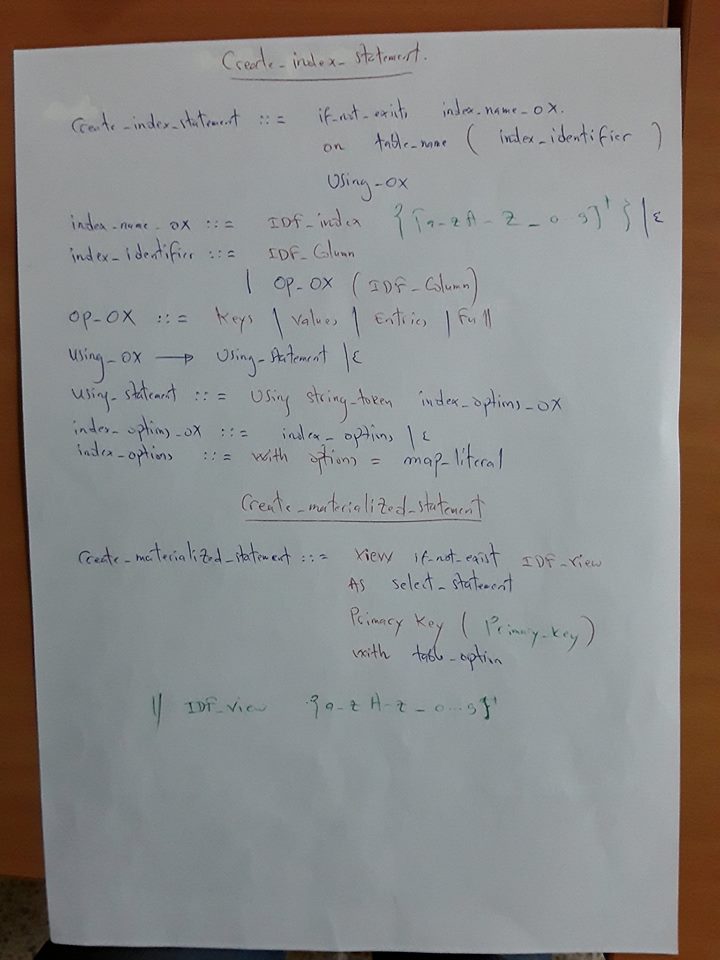 Create_index_statement.
Create_index_statement ::= if_not_exists index_name_OX.
on table_name ( index_identifier )
Using_OX
index_name_OX ::= IDF_index {[a-zA-Z_0-9]+} | ε
index_identifier ::= IDF_Column
| OP_OX ( IDF_Column )
OP_OX ::= Keys | Values | Entries | Full
Using_OX → Using_Statement | ε
Using_statement ::= Using string_token index_options_OX
index_options_OX ::= index_options | ε
index_options ::= with options = map_literal
Create_materialized_statement
Create_materialized_statement ::= View if_not_exist IDF_view
As select_statement
Primary Key ( Primary_key )
with table_option
// IDF_view {a-z A-Z_0...9}+